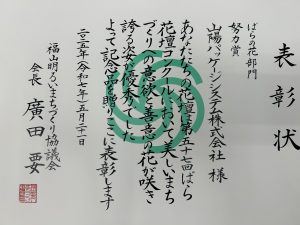 表彰状
ばらの花部門
努力賞
山陽パッケージシステム株式会社 様
あなたたちの花壇は第五十七回ばら
花壇コンクールにおいて美しいまち
づくりへの意欲と善意の花が咲き
誇り姿が優秀でした
よって記念品を贈りここに表彰します
二〇二五年(令和七年)五月二十一日
福山明るいまちづくり協議会
会長 廣田 要